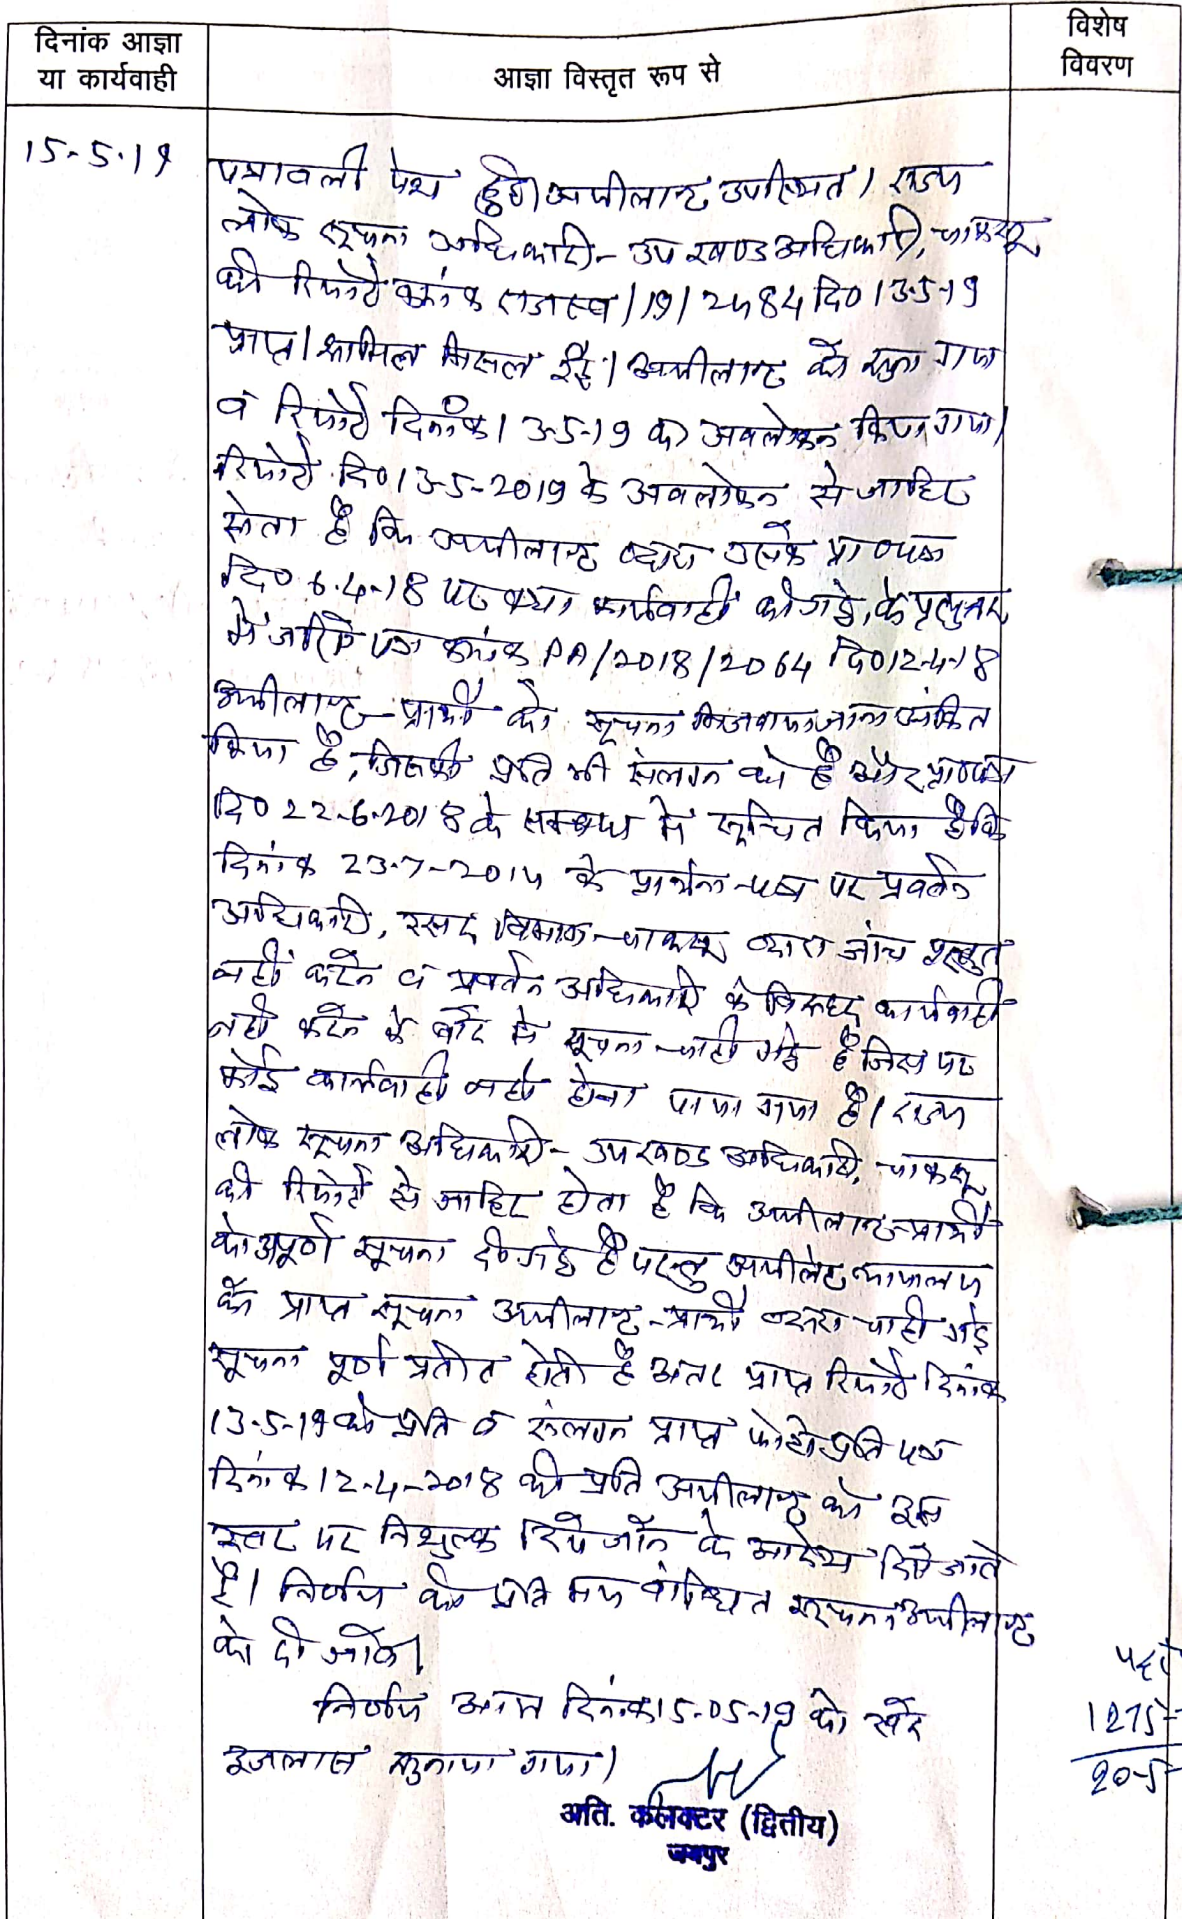 दिनांक आज्ञा
या कार्यवाही
आज्ञा विस्तृत रूप से
विशेष
विवरण
15-5-19
पत्रावली पेश हुई। अपीलान्ट उपस्थित। राज्य
लोक सूचना अधिकारी- उप खण्ड अधिकारी, चाकसू
की रिपोर्ट क्रमांक राजस्व/19/2484 दि० 13-5-19
प्राप्त। शामिल मिसल रहे। अपीलान्ट को सुना गया
व रिपोर्ट दिनांक 13-5-19 का अवलोकन किया गया।
रिपोर्ट दि० 13-5-2019 के अवलोकन से जाहिर
होता है कि अपीलान्ट द्वारा उसके प्रा०पत्र
दि० 6-4-18 पर क्या कार्यवाही की गई, के प्रत्युत्तर
में जरिये पत्र क्रमांक PA/2018/2064 दि० 12-4-18
अपीलान्ट-प्रार्थी को सूचना भिजवाया जाना अंकित
किया है, जिसकी प्रति भी संलग्न की है और प्रा०पत्र
दि० 22-6-2018 के सम्बन्ध में सूचित किया है कि
दिनांक 23-7-2014 के प्रार्थना-पत्र पर प्रवर्तन
अधिकारी, रसद विभाग-चाकसू द्वारा जांच प्रस्तुत
नहीं करने व प्रवर्तन अधिकारी के विरूद्ध कार्यवाही
नहीं करने के बारे में सूचना चाही गई है जिस पर
कोई कार्यवाही नहीं होना पाया गया है। राज्य
लोक सूचना अधिकारी- उप खण्ड अधिकारी, चाकसू
की रिपोर्ट से जाहिर होता है कि अपीलान्ट-प्रार्थी
को अपूर्ण सूचना दी गई है परन्तु अपीलेट न्यायालय
को प्राप्त सूचना अपीलान्ट-प्रार्थी द्वारा चाही गई
सूचना पूर्ण प्रतीत होती है अतः प्राप्त रिपोर्ट दिनांक
13-5-19 की प्रति व संलग्न प्राप्त फोटो प्रति पत्र
दिनांक 12-4-2018 की प्रति अपीलान्ट को इस
स्तर पर निशुल्क दिये जाने के आदेश दिये जाते
है। निर्णय की प्रति मय वांछित सूचना अपीलान्ट
को दी जावे।
निर्णय आज दिनांक 15-05-19 को सरे
इजलास सुनाया गया।
अति. कलक्टर (द्वितीय)
जयपुर
1275
20-5